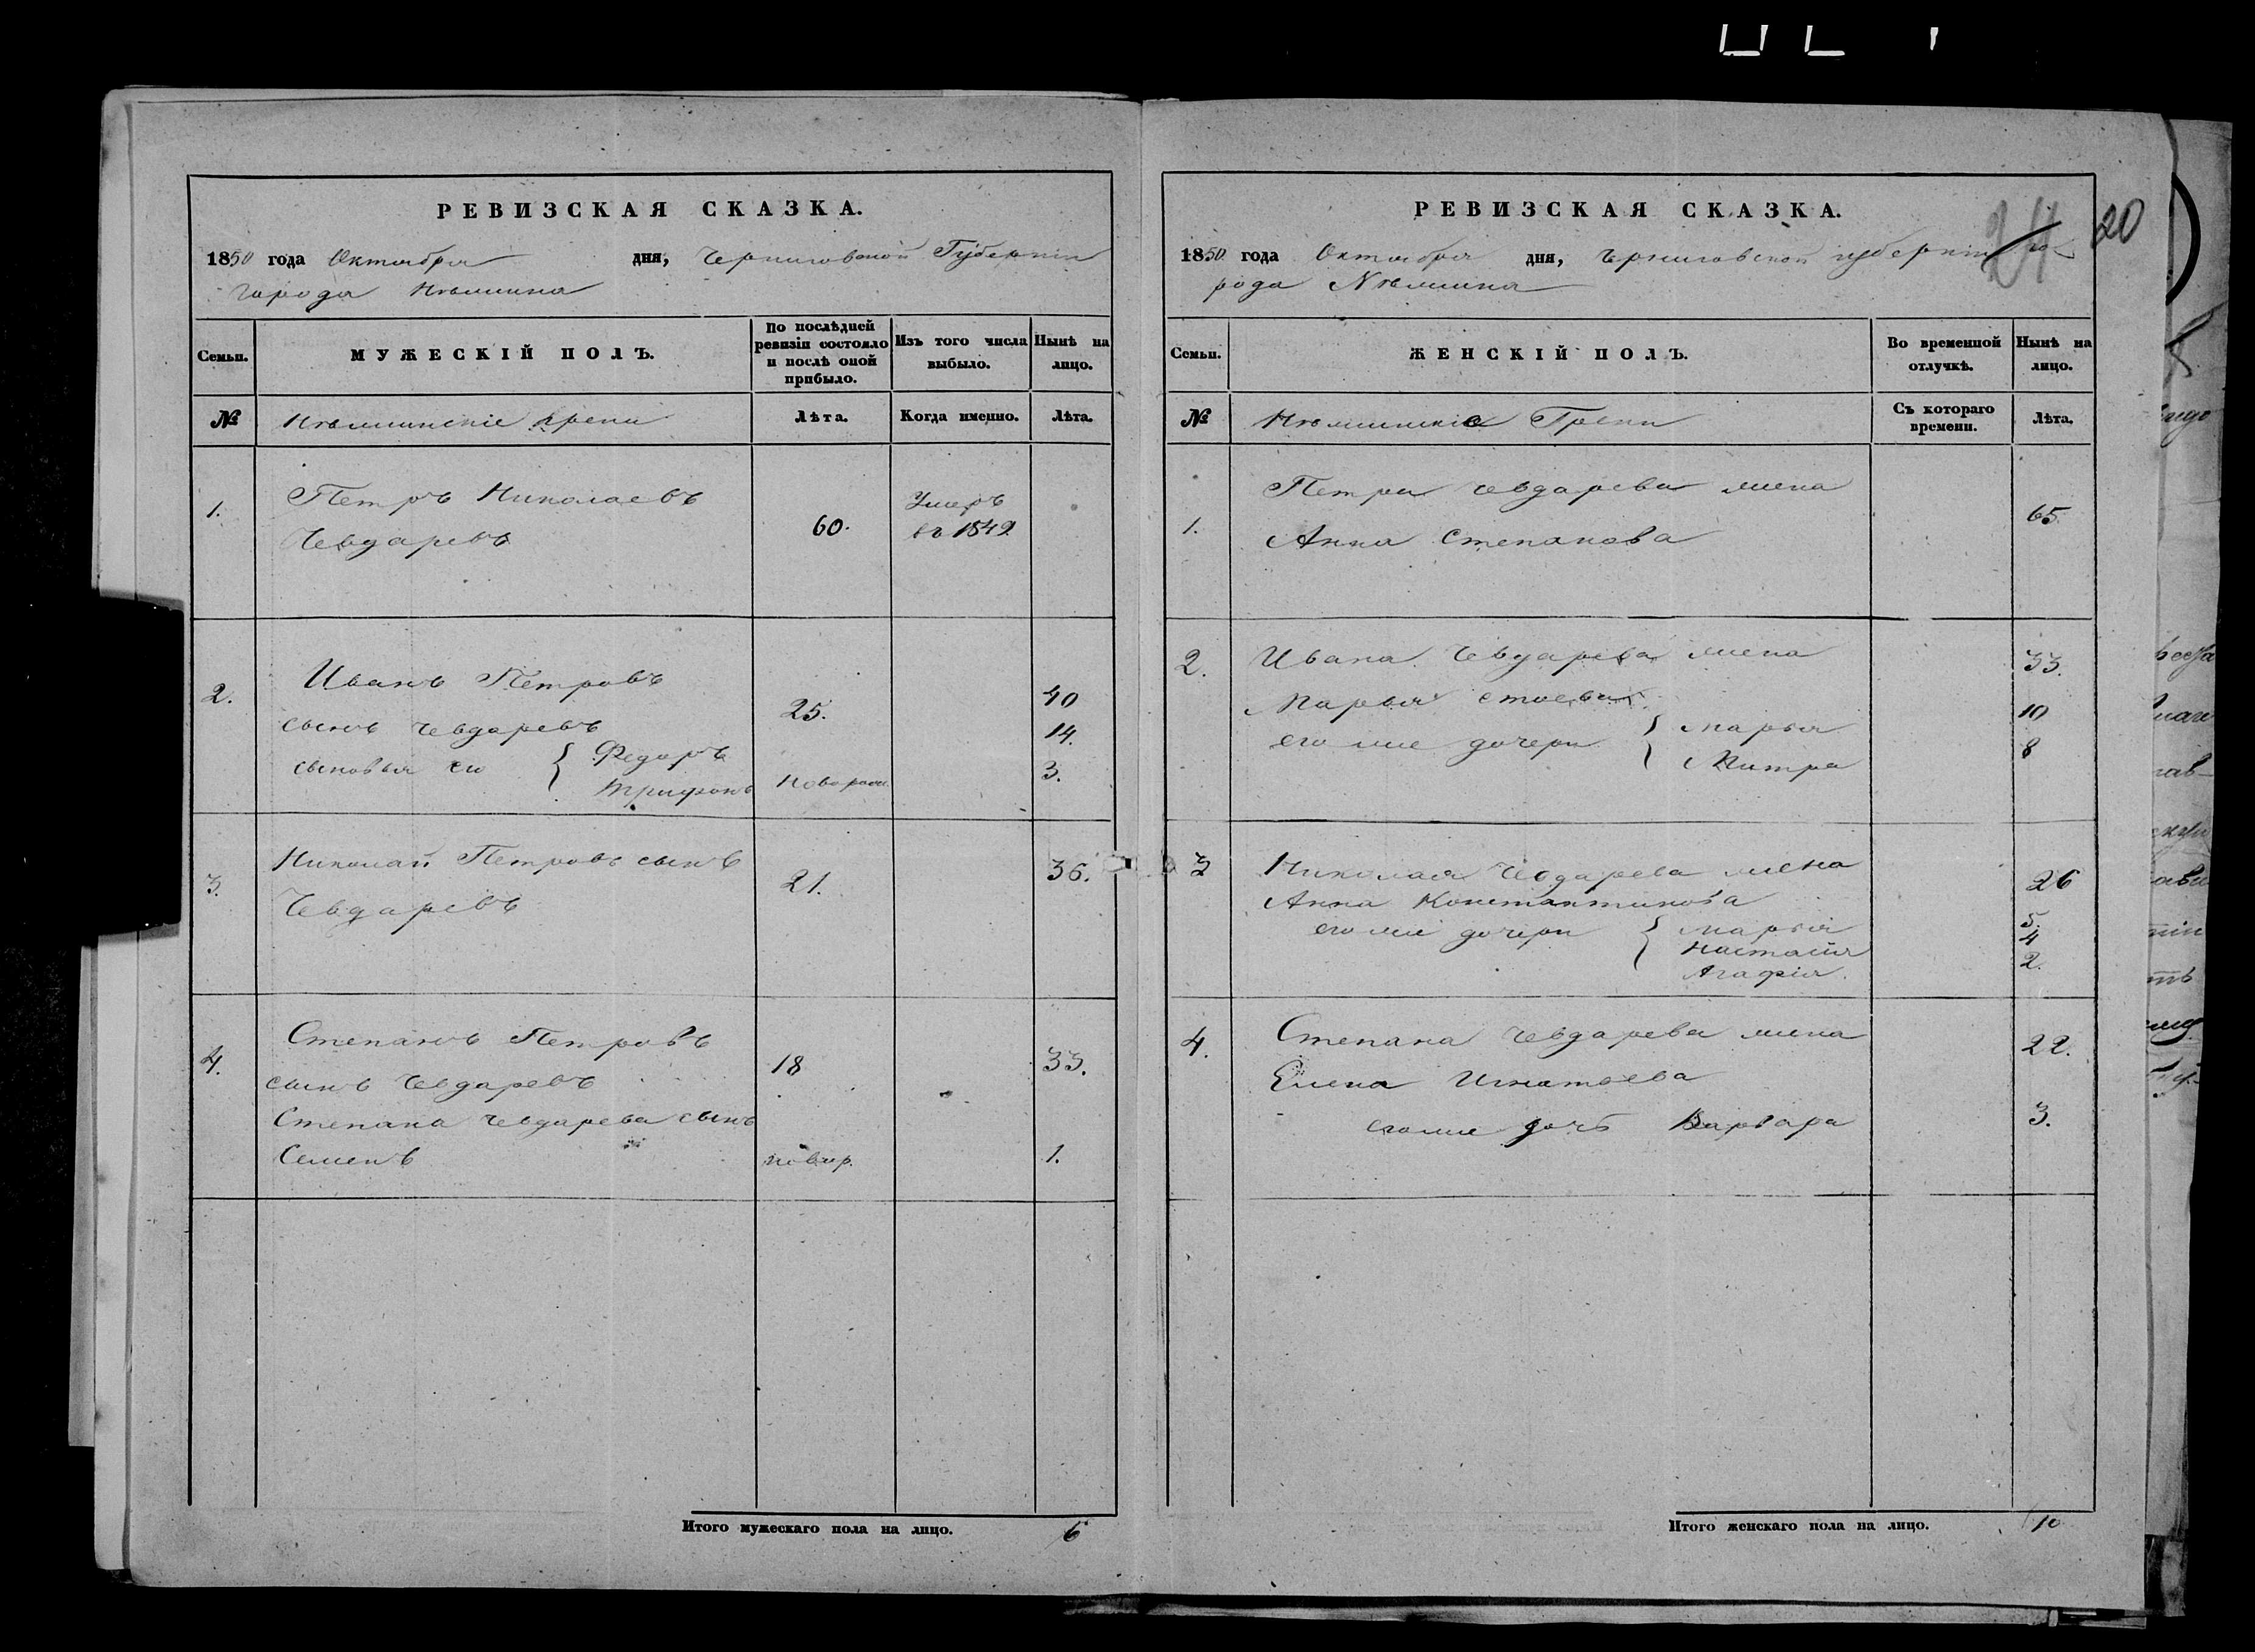 РЕВИЗСКАЯ СКАЗКА.
1850 года Октября дня, Черниговской Губерніи
города Нѣжина
Семьи.
МУЖЕСКІЙ ПОЛЪ.
По послѣдней ревизіи состояло и послѣ оной прибыло.
Изъ того числа выбыло.
Нынѣ на лицо.
№
Нѣжинскіе греки
Лѣта.
Когда именно.
Лѣта.
1.
Петръ Николаевъ
Чевдаревъ
60.
Умеръ
въ 1849
2.
Иванъ Петровъ
сынъ Чевдаревъ
сыновья его { Федоръ
Трифонъ
25.
новорож.
40
14.
3.
3.
Николай Петровъ сынъ
Чевдаревъ
21.
36.
4.
Степанъ Петровъ
сынъ Чевдаревъ
Степана Чевдарева сынъ
Семенъ
18
новор.
33.
1.
Итого мужескаго пола на лицо. 6
РЕВИЗСКАЯ СКАЗКА.
24
20
1850 года Октября дня, Черниговской губерніи го-
рода Нѣжина
Семьи.
ЖЕНСКІЙ ПОЛЪ.
Во временной отлучкѣ.
Нынѣ на лицо.
№
Нѣжинскіе Греки
Съ котораго времени.
Лѣта.
1.
Петра Чевдарева жена
Анна Степанова
65.
2.
Ивана Чевдарева жена
Марья
его же дочери { Марья
33.
10
8
3
Николая Чевдарева жена
Анна Константинова
его же дочери { Марья
Настасія
Агафія.
26
5.
4
2.
4.
Степана Чевдарева жена
Елена Игнатьева
его же дочь Варвара
22.
3.
Итого женскаго пола на лицо. 10